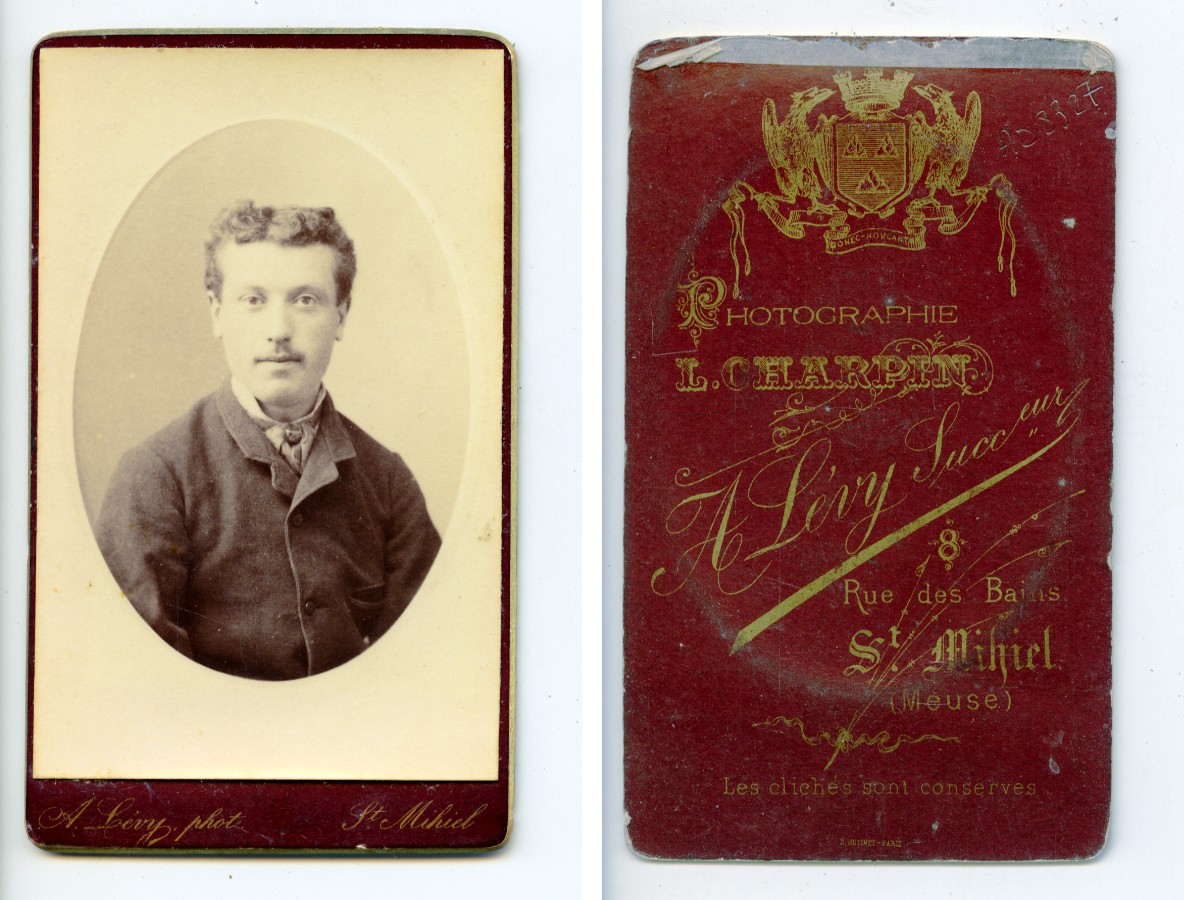 A. Lévy, phot. St Mihiel
AD 8327
DONEC-MOVEANT
PHOTOGRAPHIE
L. CHARPIN
A Lévy Succeur
8
Rue des Bains
St. Mihiel
(Meuse)
Les clichés sont conserves
D. HUTINET-PARIS